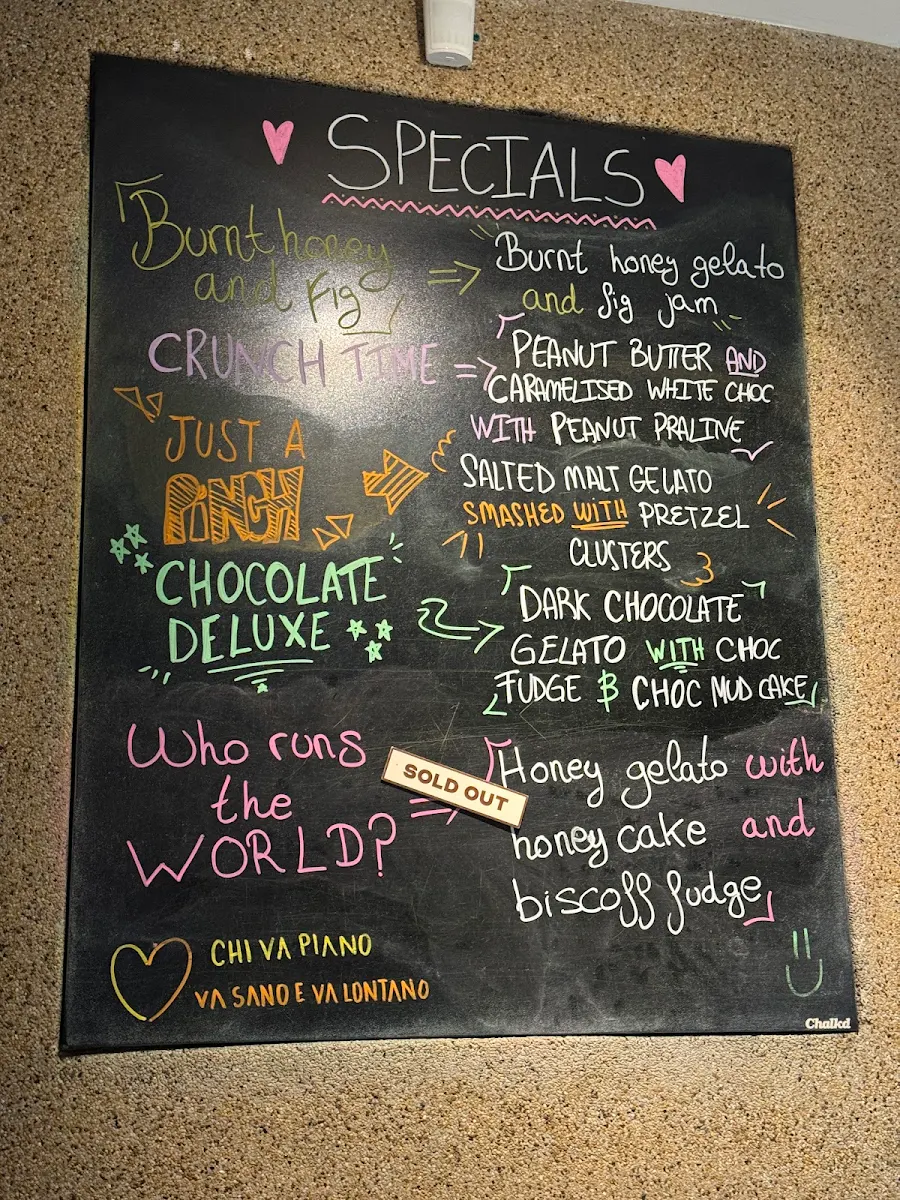 SPECIALS
Burnt honey
and Fig
Burnt honey gelato
and fig jam
CRUNCH TIME
PEANUT BUTTER AND
CARAMELISED WHITE CHOC
WITH PEANUT PRALINE
JUST A
PINCH
SALTED MALT GELATO
SMASHED WITH PRETZEL
CLUSTERS
CHOCOLATE
DELUXE
DARK CHOCOLATE
GELATO WITH CHOC
FUDGE & CHOC MUD CAKE
Who runs
the
WORLD?
SOLD OUT
Honey gelato with
honey cake and
biscoff fudge
CHI VA PIANO
VA SANO E VA LONTANO
Chalkd